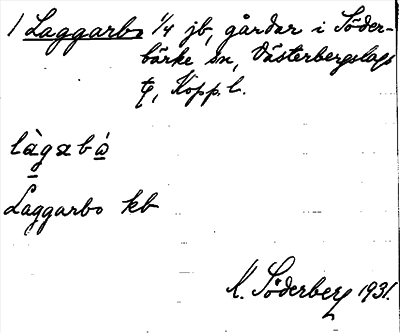 1 Laggarbo 1/4 jb, gårdar i Söder-
bärke sn, Västerbergslags
tg, Kopp. l.
làgabò
Laggarbo kb
K. Söderberg 1931.